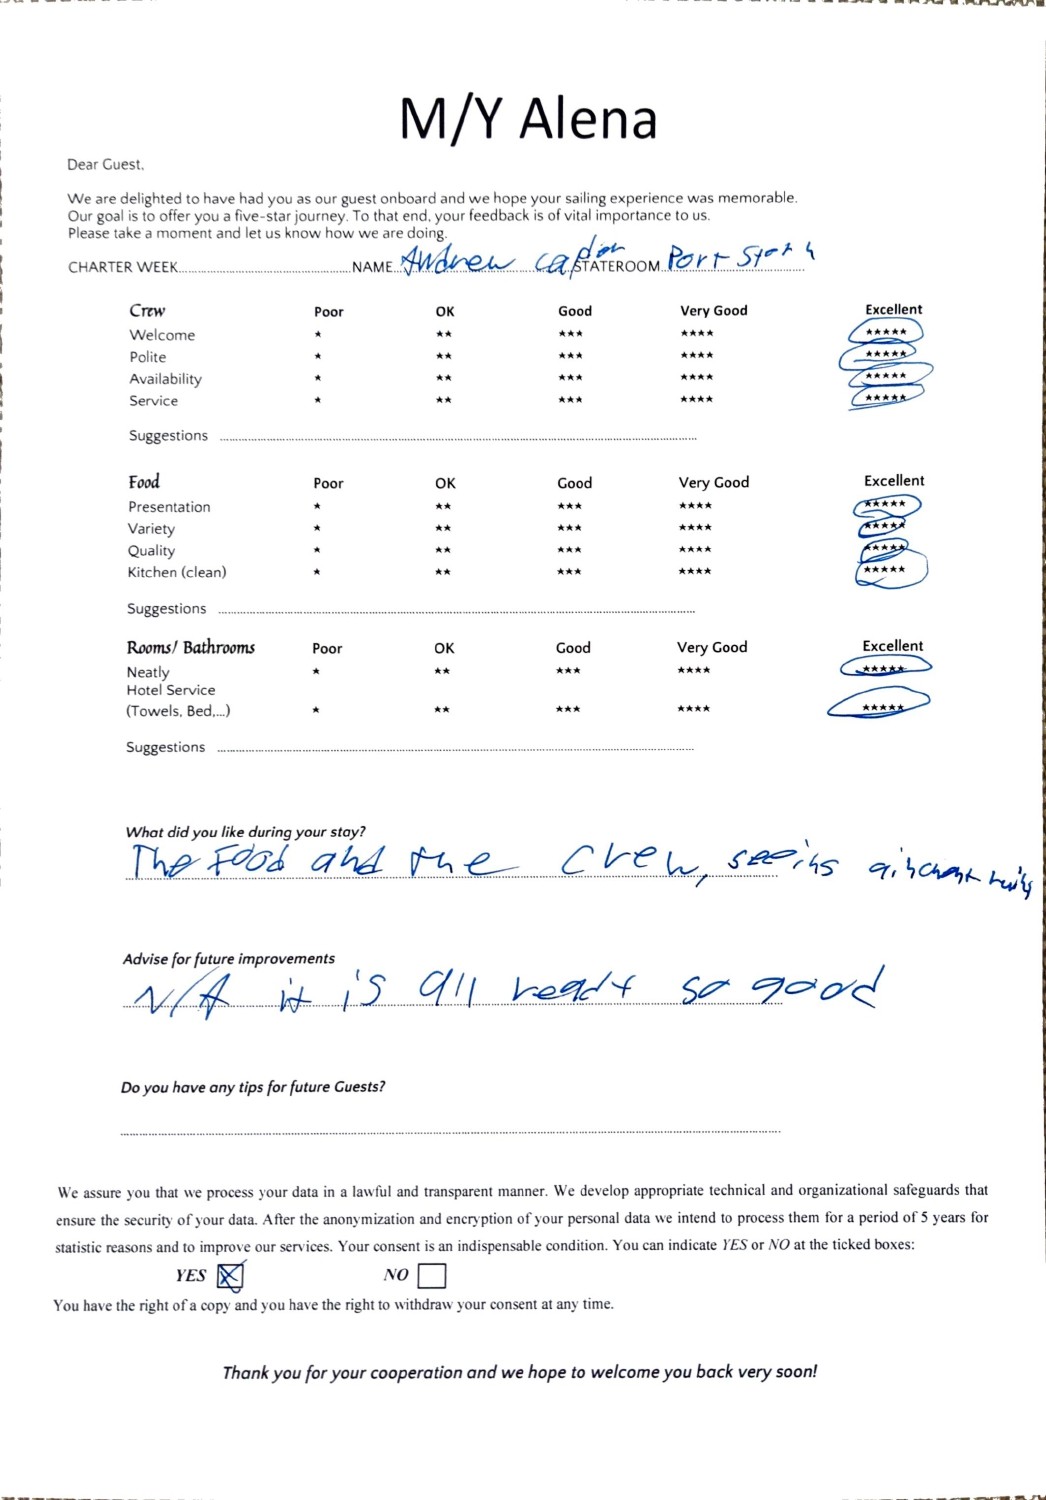 M/Y Alena
Dear Guest,
We are delighted to have had you as our guest onboard and we hope your sailing experience was memorable.
Our goal is to offer you a five-star journey. To that end, your feedback is of vital importance to us.
Please take a moment and let us know how we are doing.
CHARTER WEEK NAME Andrew STATEROOM Port
Crew Poor OK Good Very Good Excellent
Welcome ★ ★★ ★★★ ★★★★ ★★★★★
Polite ★ ★★ ★★★ ★★★★ ★★★★★
Availability ★ ★★ ★★★ ★★★★ ★★★★★
Service ★ ★★ ★★★ ★★★★ ★★★★★
Suggestions
Food Poor OK Good Very Good Excellent
Presentation ★ ★★ ★★★ ★★★★ ★★★★★
Variety ★ ★★ ★★★ ★★★★ ★★★★★
Quality ★ ★★ ★★★ ★★★★ ★★★★★
Kitchen (clean) ★ ★★ ★★★ ★★★★ ★★★★★
Suggestions
Rooms/ Bathrooms Poor OK Good Very Good Excellent
Neatly ★ ★★ ★★★ ★★★★ ★★★★★
Hotel Service
(Towels, Bed,...) ★ ★★ ★★★ ★★★★ ★★★★★
Suggestions
What did you like during your stay?
The Food and the Crew, seeing
Advise for future improvements
N/A it is all ready so good
Do you have any tips for future Guests?
We assure you that we process your data in a lawful and transparent manner. We develop appropriate technical and organizational safeguards that
ensure the security of your data. After the anonymization and encryption of your personal data we intend to process them for a period of 5 years for
statistic reasons and to improve our services. Your consent is an indispensable condition. You can indicate YES or NO at the ticked boxes:
YES NO
You have the right of a copy and you have the right to withdraw your consent at any time.
Thank you for your cooperation and we hope to welcome you back very soon!